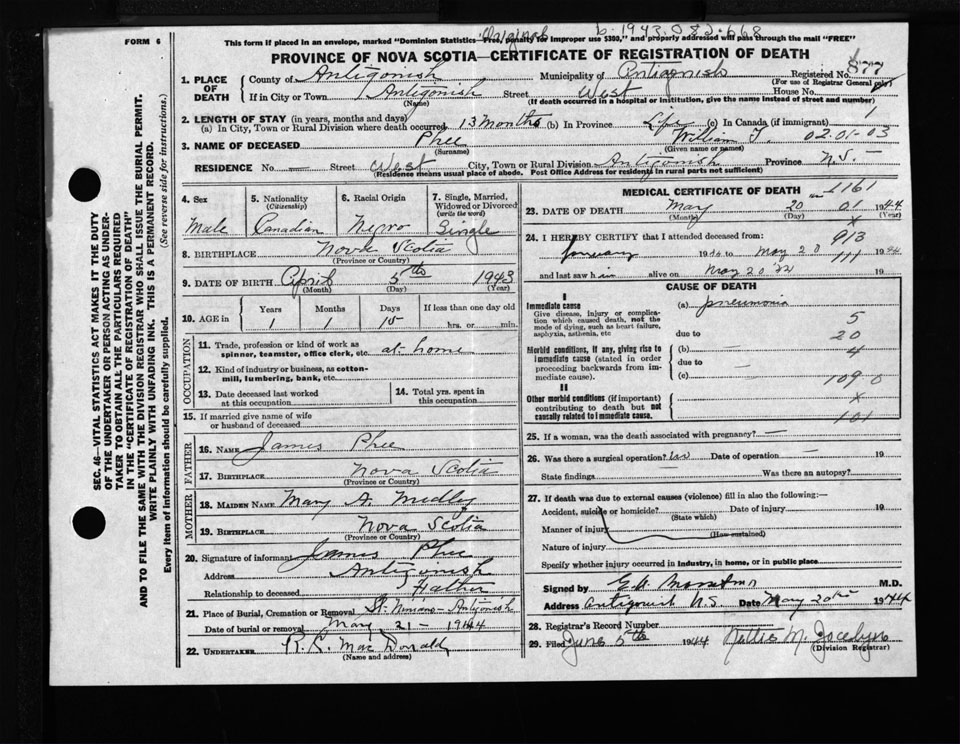 Original b. 1943.082.668
FORM 6
This form if placed in an envelope, marked "Dominion Statistics—Free, penalty for improper use $300," and properly addressed will pass through the mail "FREE"
PROVINCE OF NOVA SCOTIA—CERTIFICATE OF REGISTRATION OF DEATH
1. PLACE OF DEATH
County of Antigonish Municipality of Antigonish Registered No. 877
(For use of Registrar General only)
If in City or Town Antigonish Street West House No.
(Name) (If death occurred in a hospital or institution, give the name instead of street and number)
2. LENGTH OF STAY (in years, months and days)
(a) In City, Town or Rural Division where death occurred 13 Months (b) In Province Life (c) In Canada (if immigrant)
3. NAME OF DECEASED Phee William T. 02.01-03
(Surname) (Given name or names)
RESIDENCE No. — Street West City, Town or Rural Division Antigonish Province N.S.
(Residence means usual place of abode. Post Office Address for residents in rural parts not sufficient)
4. Sex Male
5. Nationality (Citizenship) Canadian
6. Racial Origin Negro
7. Single, Married, Widowed or Divorced (write the word) Single
8. BIRTHPLACE Nova Scotia
(Province or Country)
9. DATE OF BIRTH April 5th 1943
(Month) (Day) (Year)
10. AGE in Years Months Days If less than one day old
1 1 15 hrs. or min.
OCCUPATION
11. Trade, profession or kind of work as spinner, teamster, office clerk, etc. at home
12. Kind of industry or business, as cotton-mill, lumbering, bank, etc.
13. Date deceased last worked at this occupation
14. Total yrs. spent in this occupation
15. If married give name of wife or husband of deceased
FATHER
16. NAME James Phee
17. BIRTHPLACE Nova Scotia
(Province or Country)
MOTHER
18. MAIDEN NAME Mary A. Medley
19. BIRTHPLACE Nova Scotia
(Province or Country)
20. Signature of informant James Phee
Address Antigonish
Relationship to deceased Father
21. Place of Burial, Cremation or Removal St. Ninians - Antigonish
Date of burial or removal May 21 - 1944
22. UNDERTAKER R. R. Mac Donald
(Name and address)
MEDICAL CERTIFICATE OF DEATH
1161
23. DATE OF DEATH May 20 01 1944
(Month) (Day) (Year)
x
24. I HEREBY CERTIFY that I attended deceased from: 913
January 1944 to May 20 1944
111
and last saw him alive on May 20 19
CAUSE OF DEATH
I
Immediate cause
Give disease, injury or complication which caused death, not the mode of dying, such as heart failure, asphyxia, asthenia, etc
(a) pneumonia
5
due to
20
Morbid conditions, if any, giving rise to immediate cause (stated in order proceeding backwards from immediate cause).
(b) —
4
due to
(c) —
109 0
II
Other morbid conditions (if important) contributing to death but not causally related to immediate cause.
x
101
25. If a woman, was the death associated with pregnancy? —
26. Was there a surgical operation? Date of operation — 19
State findings Was there an autopsy?
27. If death was due to external causes (violence) fill in also the following:—
Accident, suicide or homicide? Date of injury 19
(State which)
Manner of injury
(How sustained)
Nature of injury
Specify whether injury occurred in industry, in home, or in public place
Signed by M.D.
Address Antigonish N.S. Date May 20 1944
28. Registrar's Record Number
29. Filed June 5th 1944 Nettie M. Jocelyn
(Division Registrar)
SEC. 46—VITAL STATISTICS ACT MAKES IT THE DUTY
OF THE UNDERTAKER OR PERSON ACTING AS UNDER-
TAKER TO OBTAIN ALL THE PARTICULARS REQUIRED
IN THE "CERTIFICATE OF REGISTRATION OF DEATH"
AND TO FILE THE SAME WITH THE DIVISION REGISTRAR WHO SHALL ISSUE THE BURIAL PERMIT.
WRITE PLAINLY WITH UNFADING INK. THIS IS A PERMANENT RECORD.
Every item of information should be carefully supplied. (See reverse side for instructions.)